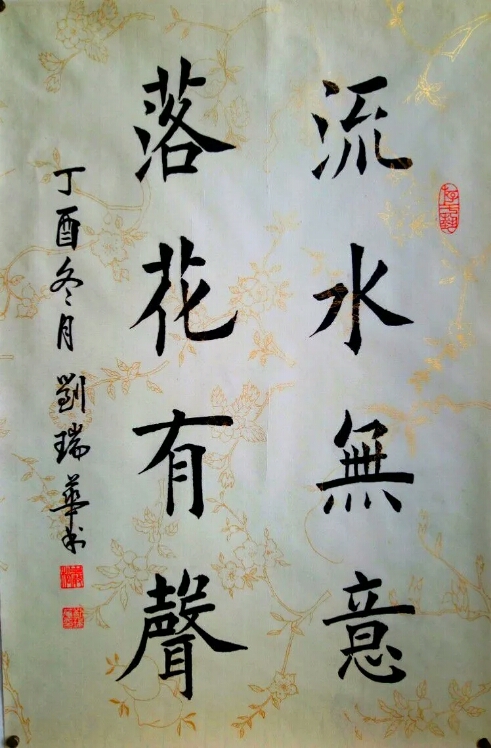 流水無意
落花有聲
丁酉冬月劉瑞華书